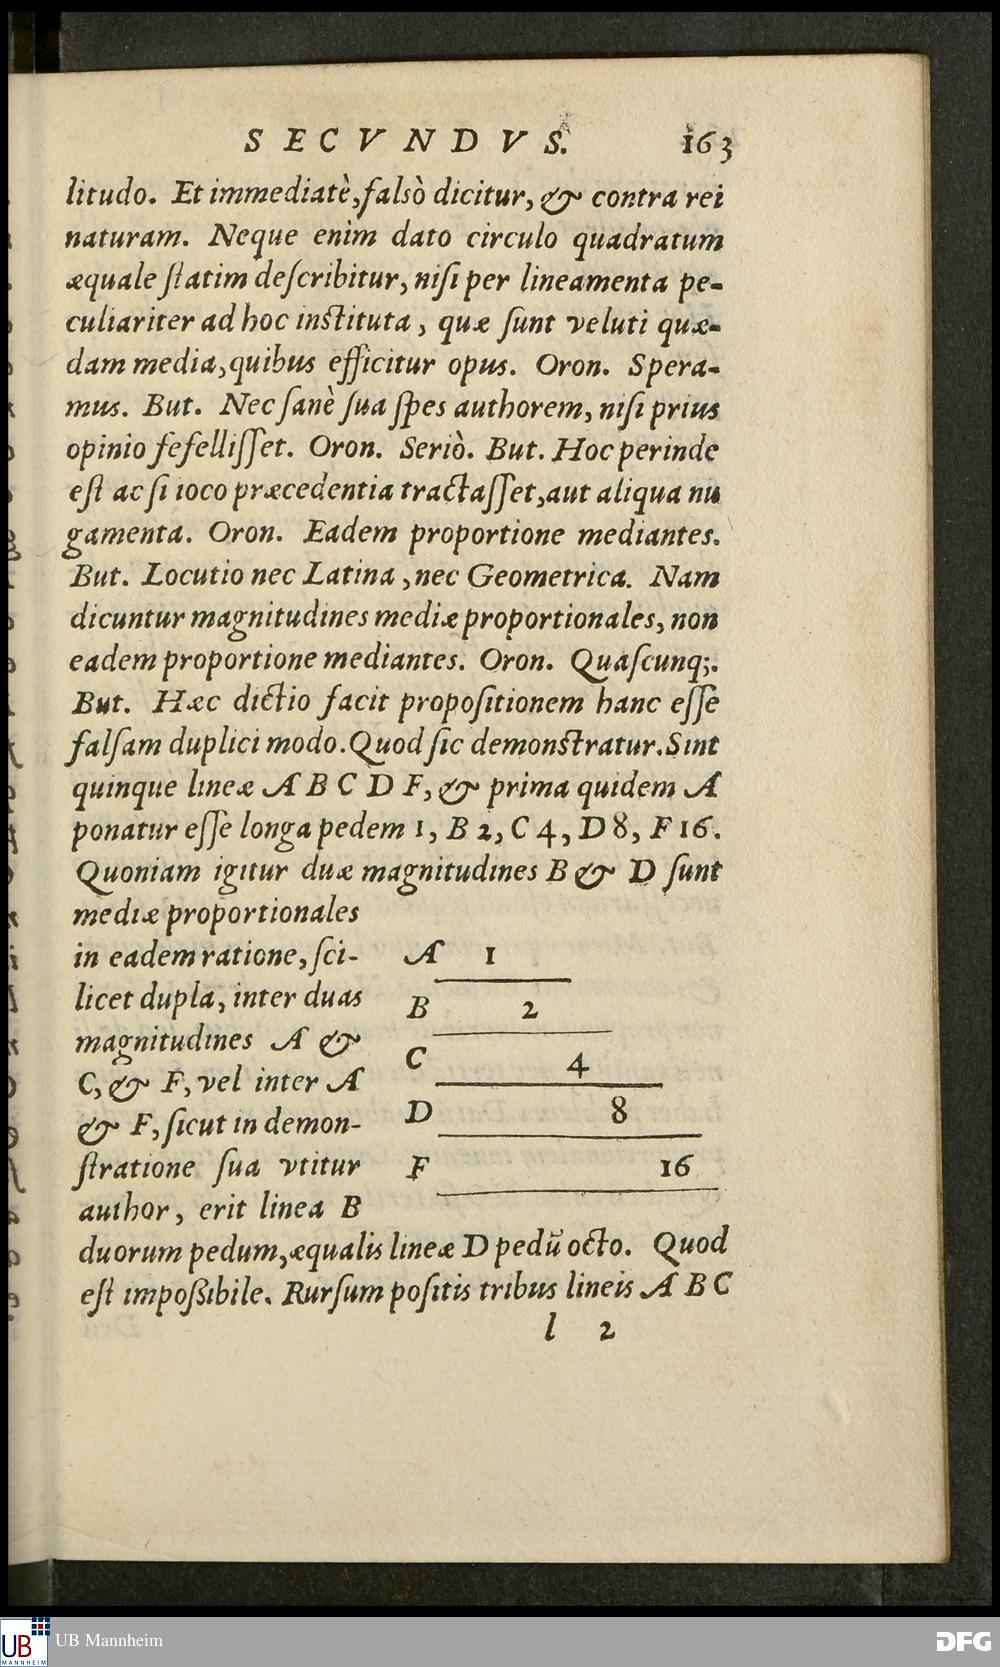 SECVNDVS. 163
litudo. Et immediatè, falsò dicitur, & contra rei
naturam. Neque enim dato circulo quadratum
æquale ſtatim deſcribitur, niſi per lineamenta pe-
culiariter ad hoc inſtituta, quæ ſunt veluti quæ-
dam media, quibus efficitur opus. Oron. Spera-
mus. But. Nec ſanè ſua ſpes authorem, niſi prius
opinio fefelliſſet. Oron. Seriò. But. Hoc perinde
eſt ac ſi ioco præcedentia tractaſſet, aut aliqua nu
gamenta. Oron. Eadem proportione mediantes.
But. Locutio nec Latina, nec Geometrica. Nam
dicuntur magnitudines mediæ proportionales, non
eadem proportione mediantes. Oron. Quaſcunq;.
But. Hæc dictio facit propoſitionem hanc eſſe
falſam duplici modo. Quod ſic demonſtratur. Sint
quinque lineæ A B C D F, & prima quidem A
ponatur eſſe longa pedem 1, B 2, C 4, D 8, F 16.
Quoniam igitur duæ magnitudines B & D ſunt
mediæ proportionales
in eadem ratione, ſci-
licet dupla, inter duas
magnitudines A &
C, & F, vel inter A
& F, ſicut in demon-
ſtratione ſua vtitur
author, erit linea B
A 1
B 2
C 4
D 8
F 16
duorum pedum, æqualis lineæ D pedū octo. Quod
eſt impoſsibile. Rurſum poſitis tribus lineis A B C
l 2
UB MANNHEIM
UB Mannheim
DFG